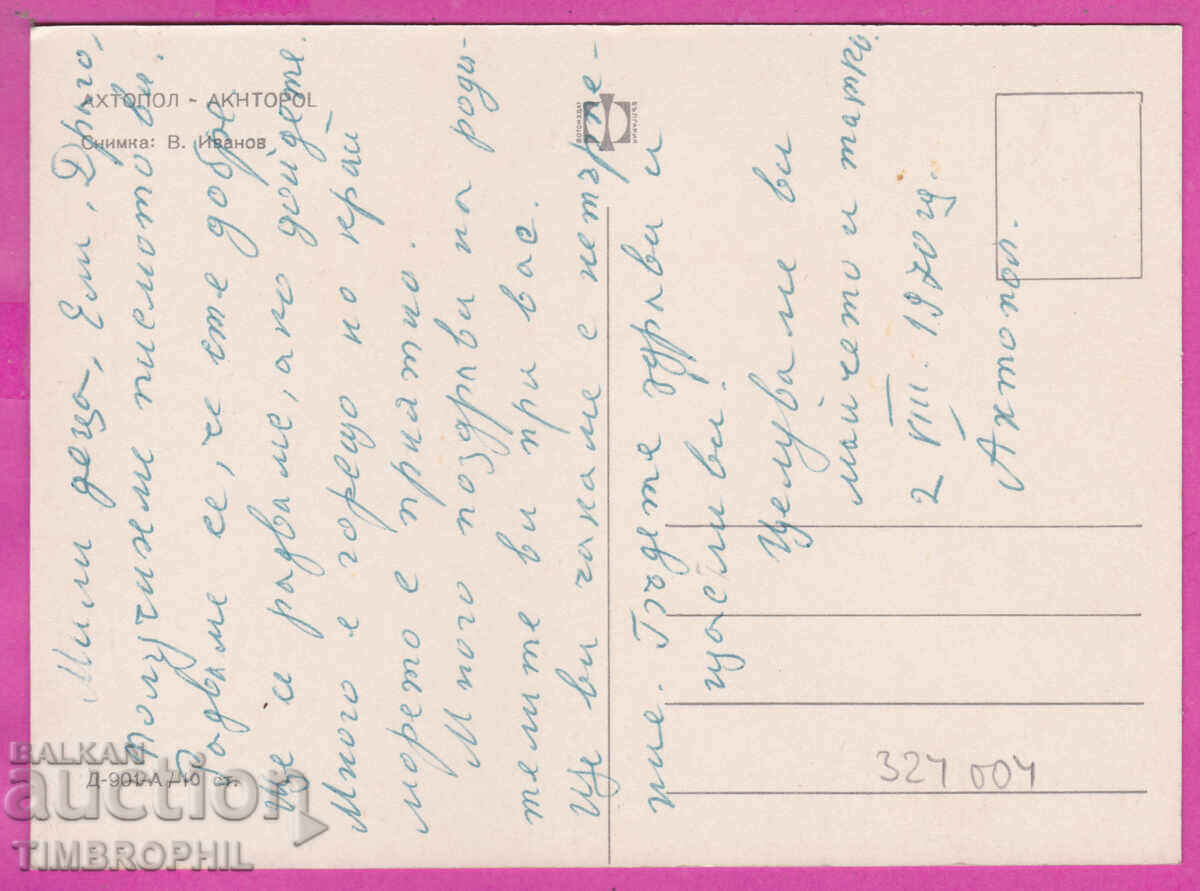 АХТОПОЛ - AKHTOPOL
Снимка: В. Иванов
БЪЛГАРИЯ
ФОТОИЗДАТ
Мили деца, Ели, Друго,
Получихме писмото ви.
Радваме се, че сте добре.
Ще се радваме, ако дойдете
Много е горещо но край
морето е приятно.
Много поздрави на роди-
телите ви при вас.
Ще ви чакаме с нетърпе-
ние. Бъдете здрави и
щастливи!
Целуваме ви
майчето и татко.
2 VIII. 1970 г.
Ахтопол.
Д-901-А / 10 ст.
321 004
BALKAN
auction
TIMBROPHIL